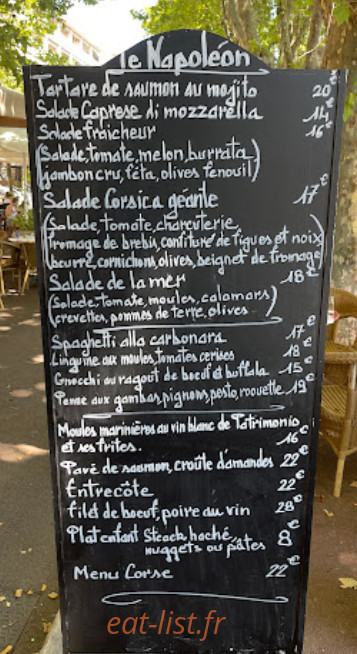 Le Napoléon
Tartare de saumon au mojito 20€
Salade Caprese di mozzarella 14€
Salade fraicheur 16€
(Salade, tomate, melon, burrata,
jambon cru, feta, olives fenouil)
Salade Corsica géante 17€
(Salade, tomate, charcuterie,
fromage de brebis, confiture de figues et noix,
beurre, cornichons, olives, beignet de fromage)
Salade de la mer 18€
(Salade, tomate, moules, calamars,
crevettes, pommes de terre, olives)
Spaghetti alla carbonara 17€
Linguine aux moules, tomates cerises 18€
Gnocchi au ragoût de boeuf et buffala 15€
Penne aux gambas, pignons, pesto, roquette 19€
Moules marinières au vin blanc de Patrimonio
et ses frites. 16€
Pavé de saumon, croûte d'amandes 22€
Entrecôte 22€
filet de boeuf, poire au vin 28€
Plat enfant Steack haché,
nuggets ou pâtes 8€
Menu Corse 22€
eat-list.fr